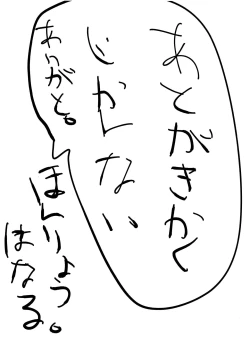 あとがきかく
じかんない
ありがと。
ほんりょう
はなる。